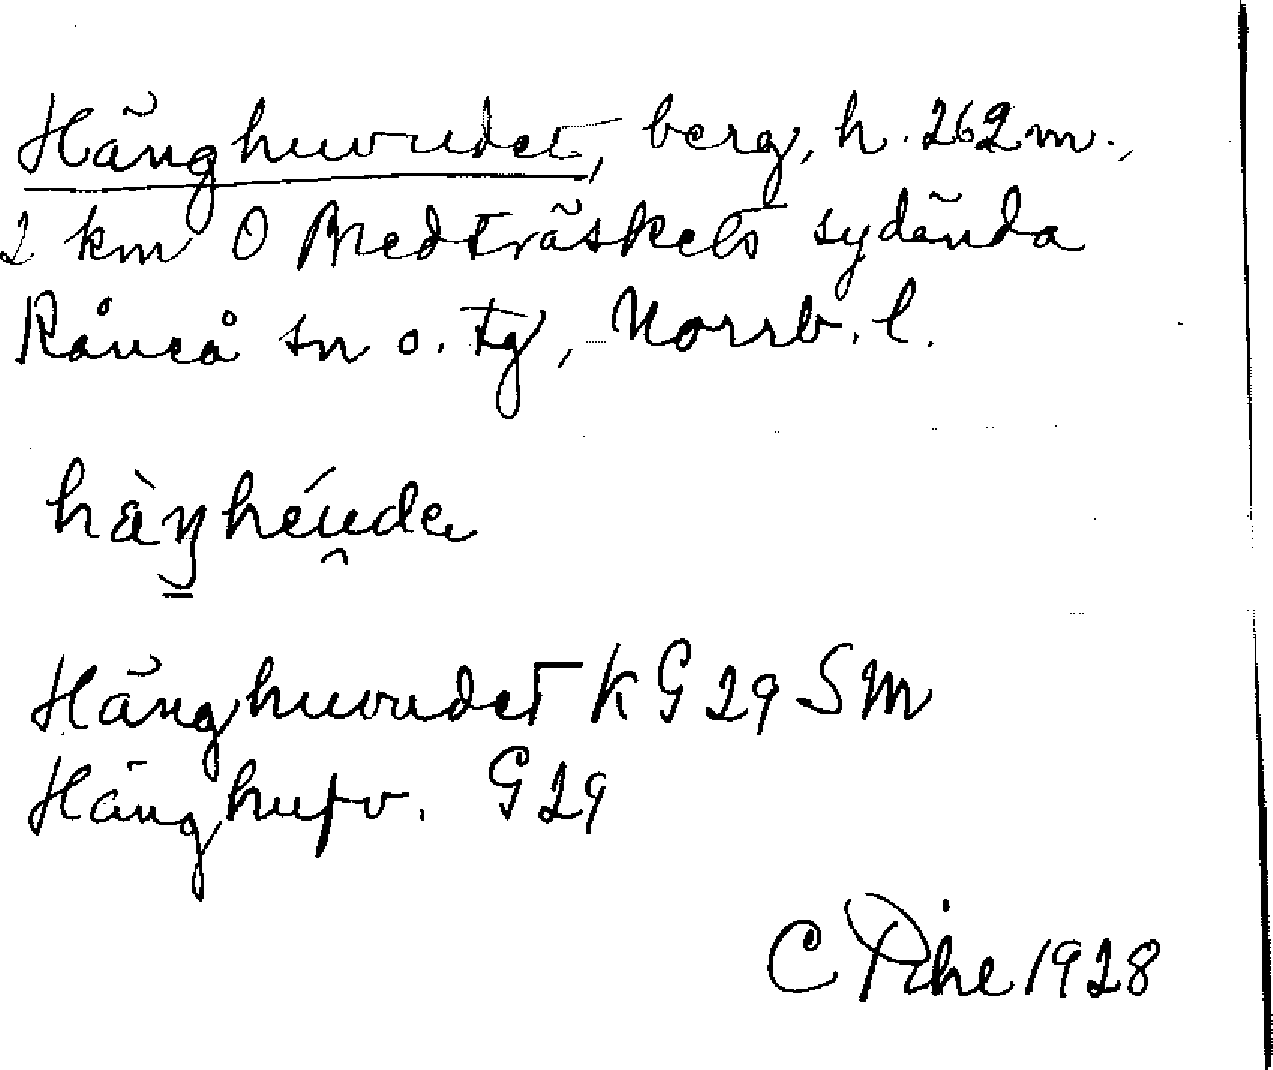 Hänghuvudet, berg, h. 262 m.,
2 km O Medträskets sydända
Råneå sn o. tg, Norrb. l.
Hänghuvudet K G29 SM
Hänghufv. G29
C Pihl 1928